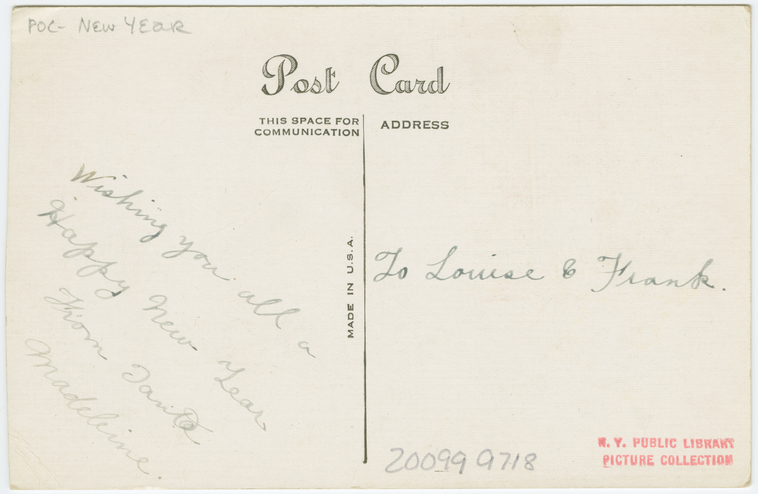 POC- NEW YEAR
Post Card
THIS SPACE FOR
COMMUNICATION
ADDRESS
Wishing you all a
Happy New Year
From Tante
Madeline.
MADE IN U.S.A.
To Louise & Frank.
20099 9718
N. Y. PUBLIC LIBRARY
PICTURE COLLECTION